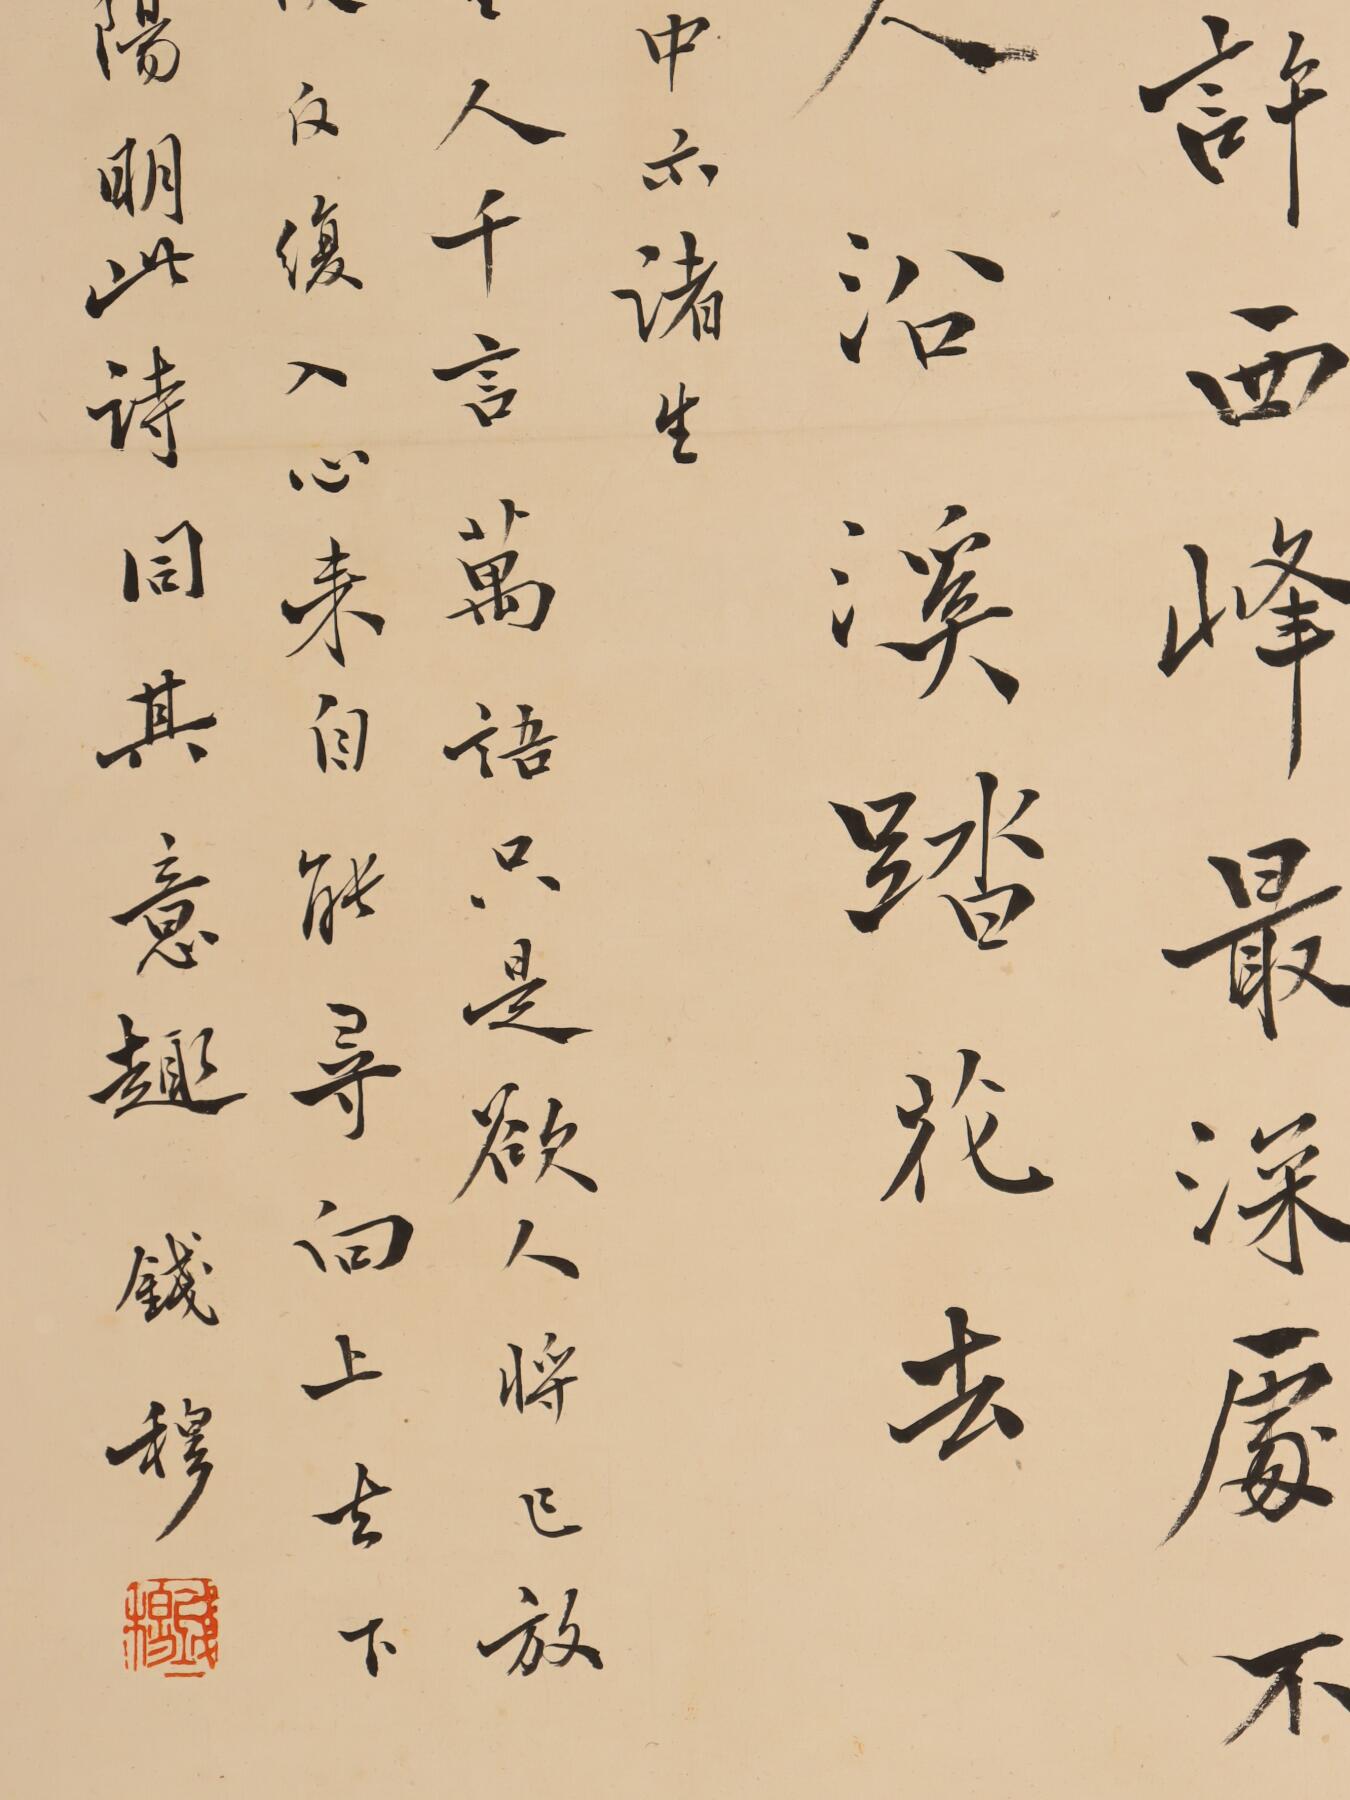 許西峰最深處不
人沿溪踏花去
中示諸生
人千言萬語只是欲人將已放
反復入心來自能尋向上去下
陽明此詩同其意趣 錢穆
錢穆